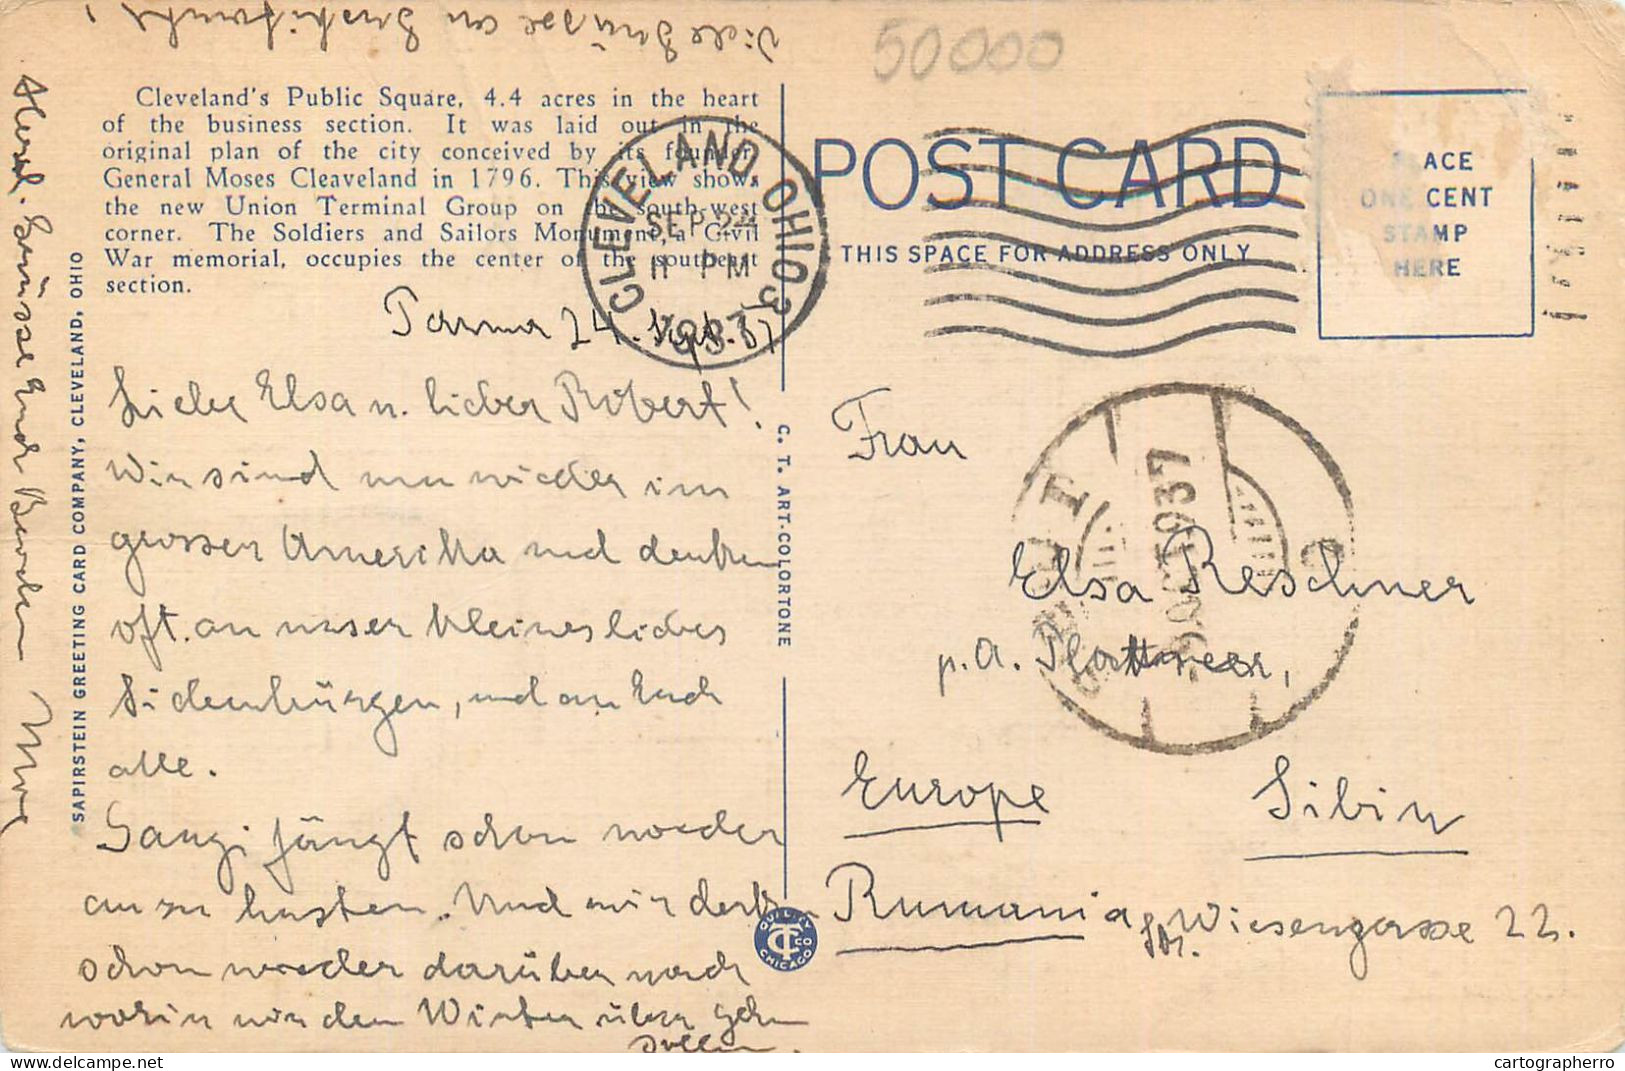 50000
Viele Grüsse an
Cleveland's Public Square, 4.4 acres in the heart
of the business section. It was laid out in the
original plan of the city conceived by its founder,
General Moses Cleaveland in 1796. This view shows
the new Union Terminal Group on the south-west
corner. The Soldiers and Sailors Monument, a Civil
War memorial, occupies the center of the southeast
section.
SAPIRSTEIN GREETING CARD COMPANY, CLEVELAND, OHIO
C. T. ART-COLORTONE
POST CARD
THIS SPACE FOR ADDRESS ONLY
PLACE
ONE CENT
STAMP
HERE
CLEVELAND OHIO 3
SEP 24
11 PM
1937
Parma 24. Sept. 37
Liebe Elsa u. lieber Robert!
Wir sind nun wieder im
grossen Amerika und denken
oft an unser kleines liebes
Siebenbürgen, und an Euch
alle.
fängt schon wieder
an zu husten. Und wir denken
schon wieder darüber nach
wohin wir den Winter über gehn
sollen.
Herzl. Grüsse Euch Beiden
Frau
Elsa Reschner
p. A. Plattner,
Europe
Sibiu
Rumania
Str. Wiesengasse 22.
OCT 1937
QUALITY
CT CO
CHICAGO
cartographerro